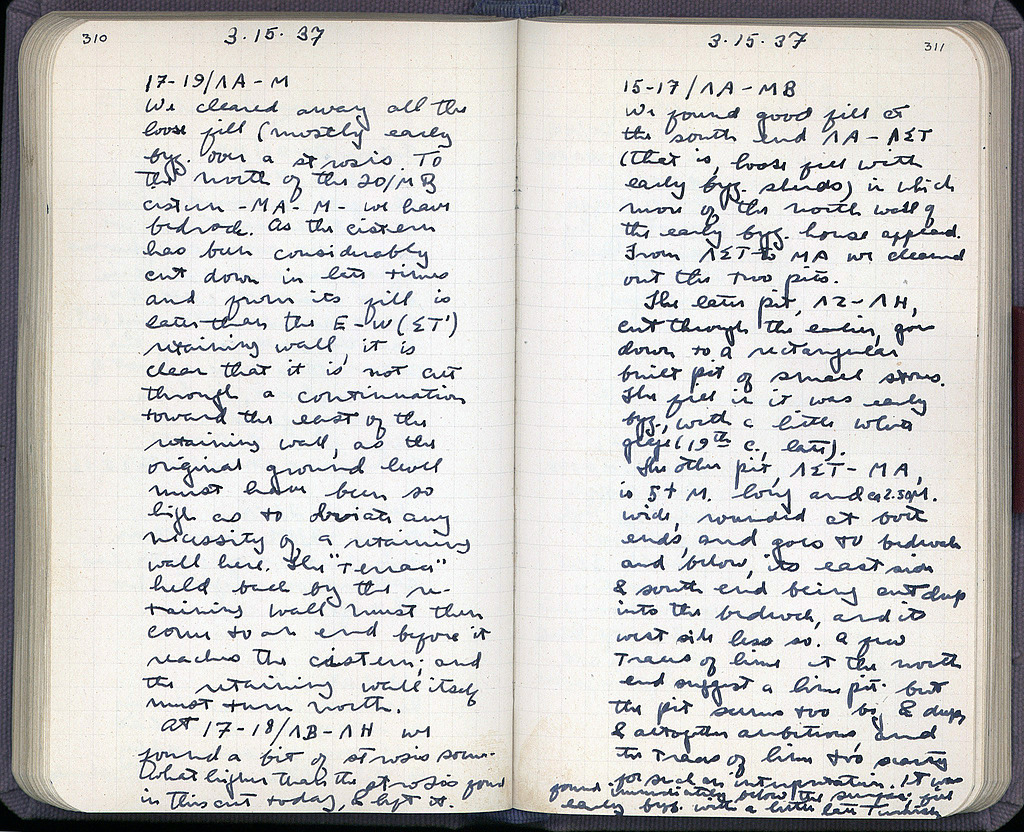 310
3·15·37
17-19/ΛA-M
We cleared away all the
loose fill (mostly early
byz. over a strosis. To
the north of the 20/MB
cistern -MA-M- we have
bedrock. As the cistern
has been considerably
cut down in late times
and from its fill is
later than the E-W (ΣT')
retaining wall, it is
clear that it is not cut
through a continuation
toward the east of the
retaining wall, as the
original ground level
must have been so
high as to obviate any
necessity of a retaining
wall here. The "Terrace"
held back by the re-
taining wall must then
come to an end before it
reaches the cistern; and
the retaining wall itself
must turn north.
At 17-18/ΛB-ΛH we
found a bit of strosis some-
what higher than the strosis found
in this cut today, & left it.
3·15·37
311
15-17/ΛA-MB
We found good fill at
the south end ΛA-ΛΣT
(that is, loose fill with
early byz. sherds) in which
more of the north wall of
the early byz. house appeared.
From ΛΣT to MA we cleaned
out the two pits.
The later pit, ΛZ-ΛH,
cut through the earlier, goes
down to a rectangular
built pit of small stones.
The fill in it was early
byz., with a little
glaze (19th c., late).
The other pit, ΛΣT-MA,
is 5+ M. long and ca 2.50M.
wide, rounded at both
ends, and goes to bedrock
and below, its east side
& south end being cut deep
into the bedrock, and its
west side less so. A few
traces of lime at the north
end suggest a lime pit: but
the pit seems too big & deep
& altogether ambitious and
the traces of lime too scanty
for such an interpretation. It was
found immediately below the surface; fill
early byz. with a little late Turkish